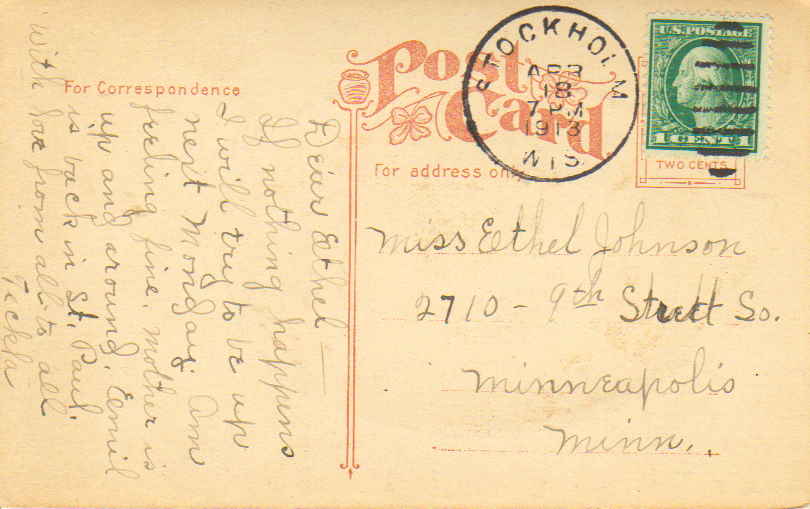 For Correspondence
Post
Card
For address only
STOCKHOLM
APR
18
7 PM
1913
WIS
U.S. POSTAGE
1 CENT 1
TWO CENTS
Dear Ethel —
If nothing happens
I will try to be up
next Monday. Am
feeling fine. Mother is
up and around. Eemil
is back in St. Paul.
With love from all to all
Teckla
Miss Ethel Johnson
2710 - 9th Street So.
Minneapolis
Minn.